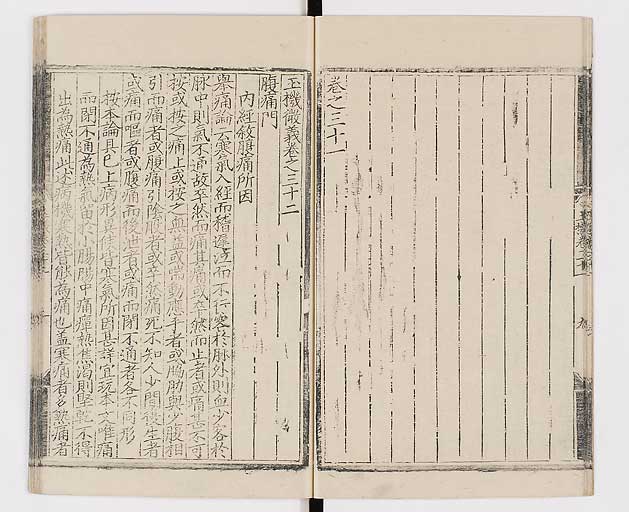 卷之三十一
玉機微義卷之三十二
腹痛門
內經敘腹痛所因
舉痛論云寒氣入經而稽遲泣而不行客於脉外則血少客於
脉中則氣不通故卒然而痛其痛或卒然而止者或痛甚不可
按或按之痛止或按之無益或喘動應手者或脇肋與少腹相
引而痛者或腹痛引陰股者或卒然痛死不知人少間復生者
或痛而嘔者或腹痛而後泄者或痛而閉不通者各不同形
按本論具已上病形異候皆寒氣所因甚詳宜玩本文唯痛
而閉不通為熱氣留於小腸腸中痛癉熱焦渴則堅乾不得
出為熱痛此述病機寒熱皆能為痛也蓋寒痛者多熱痛者